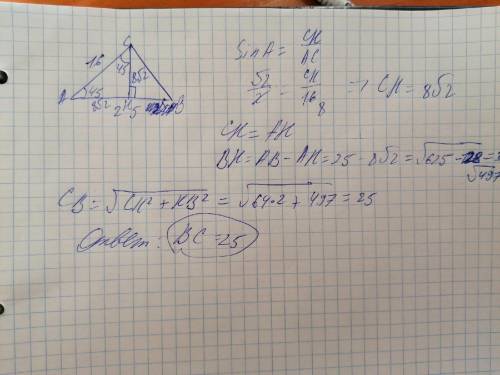 C
16
45
8√2
A
45
H
B
8√2
25
sin A = CH/AC
√2/2 = CH/16 8 ⇒ CH = 8√2
CH = AH
BH = AB - AH = 25 - 8√2 = √625 - 128 =
√497
CB = √CH² + HB² = √64·2 + 497 = 25
Ответ: BC = 25